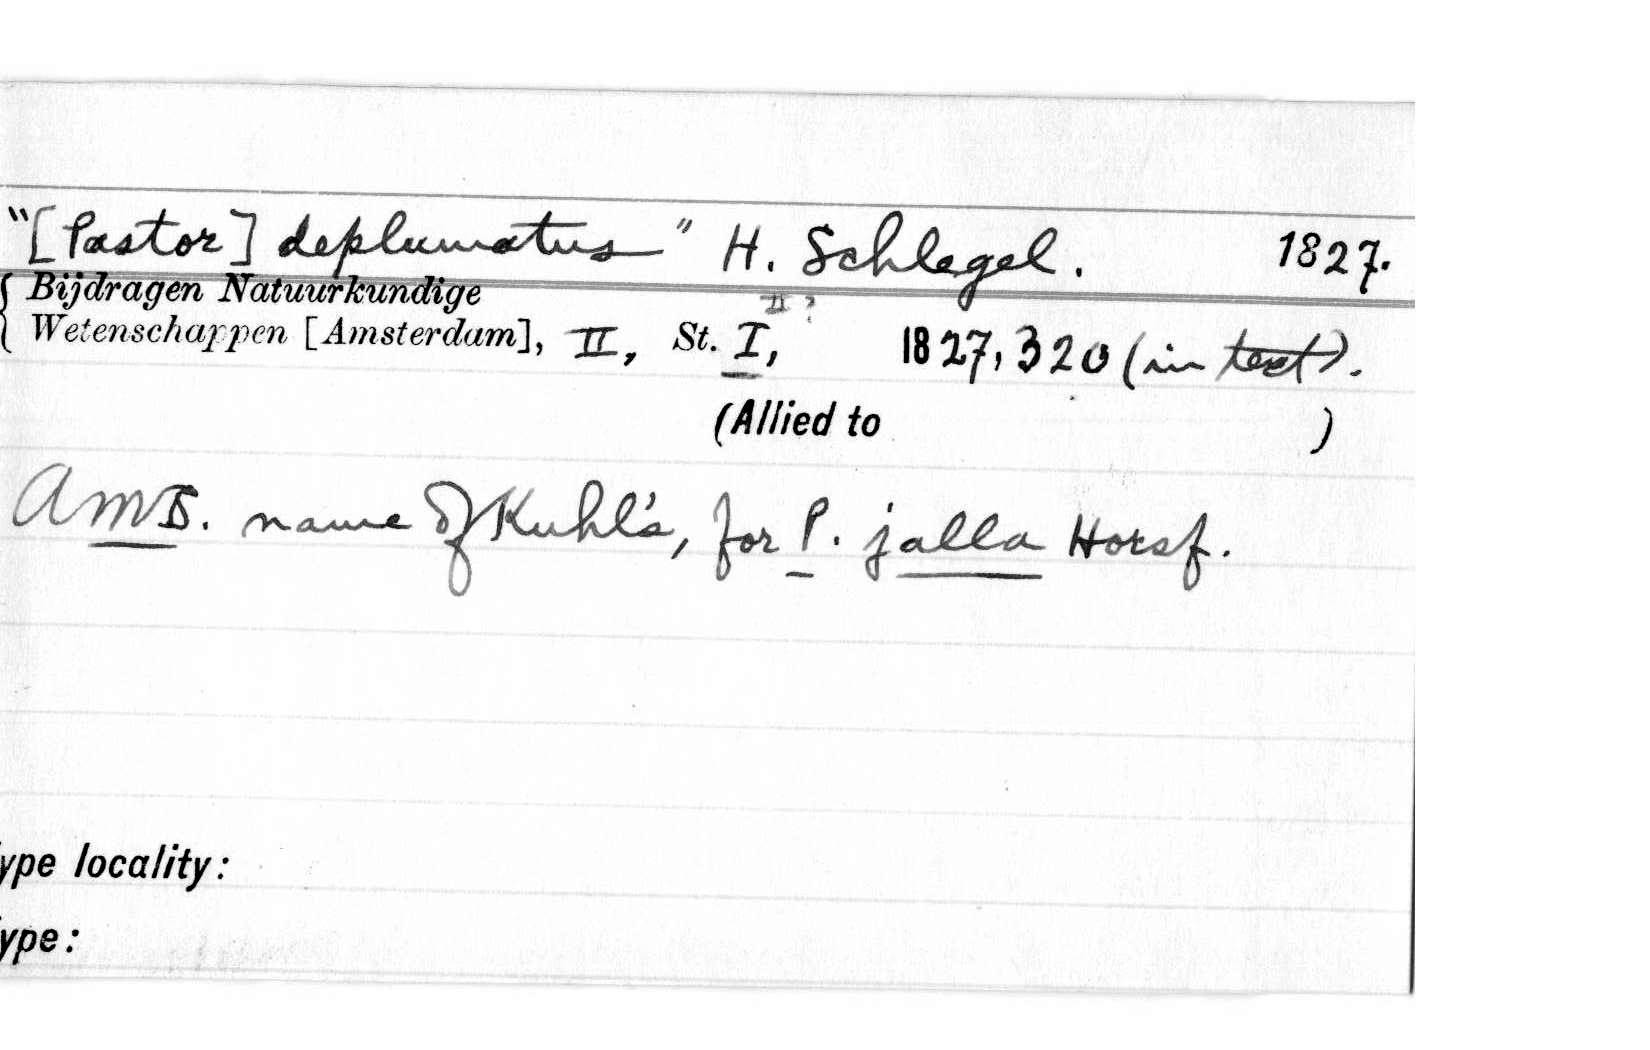 "[Pastor] deplumatus" H. Schlegel. 1827.
Bijdragen Natuurkundige
II ?
Wetenschappen [Amsterdam], II, St. I, 1827, 320 (in text).
(Allied to )
a ms. name of Kuhl's, for P. jalla Horsf.
ype locality:
ype: